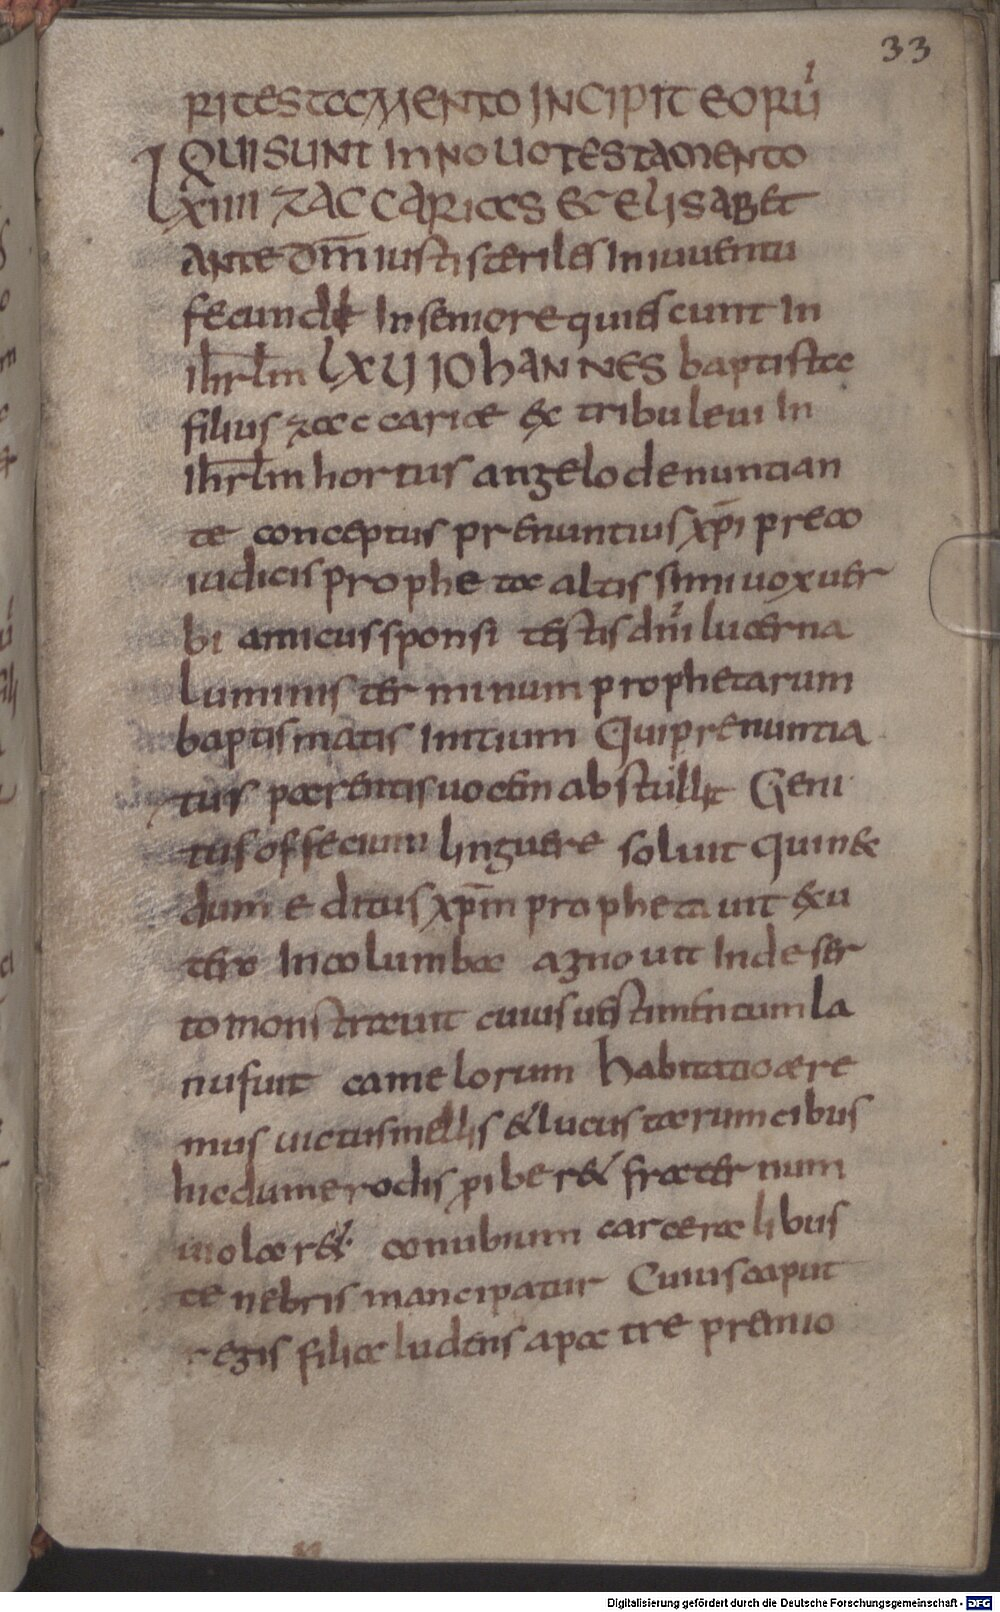 33
RI TESTAMENTO INCIPIT EORŪ
QUI SUNT IN NOUO TESTAMENTO
LXIIII ZACCARIAS ET ELISABET
ANTE dm̄ iusti steriles In iuuentu
fecunde In seniore quiescunt In
Ihrlm LXV IOhANNES baptista
filius zaccariae ex tribu leui In
Ihrlm hortus angelo denuntian
te conceptus prenuntius xp̄i preco
iudicis propheta altissimi uox uer
bi amicus sponsi testis dni lucerna
luminis terminum prophetarum
baptismatis Initium Qui prenuntia
tus parentis uocem abstullit Geni
tus offecium linguere soluit quin &
dum editus xp̄m prophetauit ex u
tero In columba agnouit In deser
to monstrauit cuius uestimentum la
nu fuit camelorum habitatio aere
mus uictus mellis & lucustarum cibus
hic dum erodis p̱iber& fraeternum
uiolar& conubium carceralibus
tenebris mancipatur Cuius caput
regis filiae ludens a patre premio
Digitalisierung gefördert durch die Deutsche Forschungsgemeinschaft - DFG